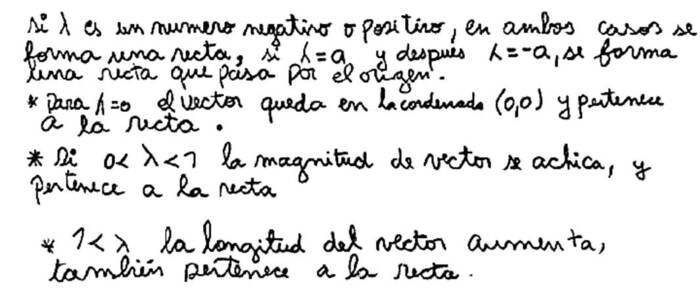 si λ es un numero negativo o positivo, en ambos casos se
forma una recta, si λ=a y despues λ=-a, se forma
una recta que pasa por el origen.
* para λ=0 el vector queda en la cordenada (0,0) y pertenece
a la recta.
* Si 0<λ<1 la magnitud de vector se achica, y
pertenece a la recta
* 1<λ la longitud del vector aumenta,
también pertenece a la recta.